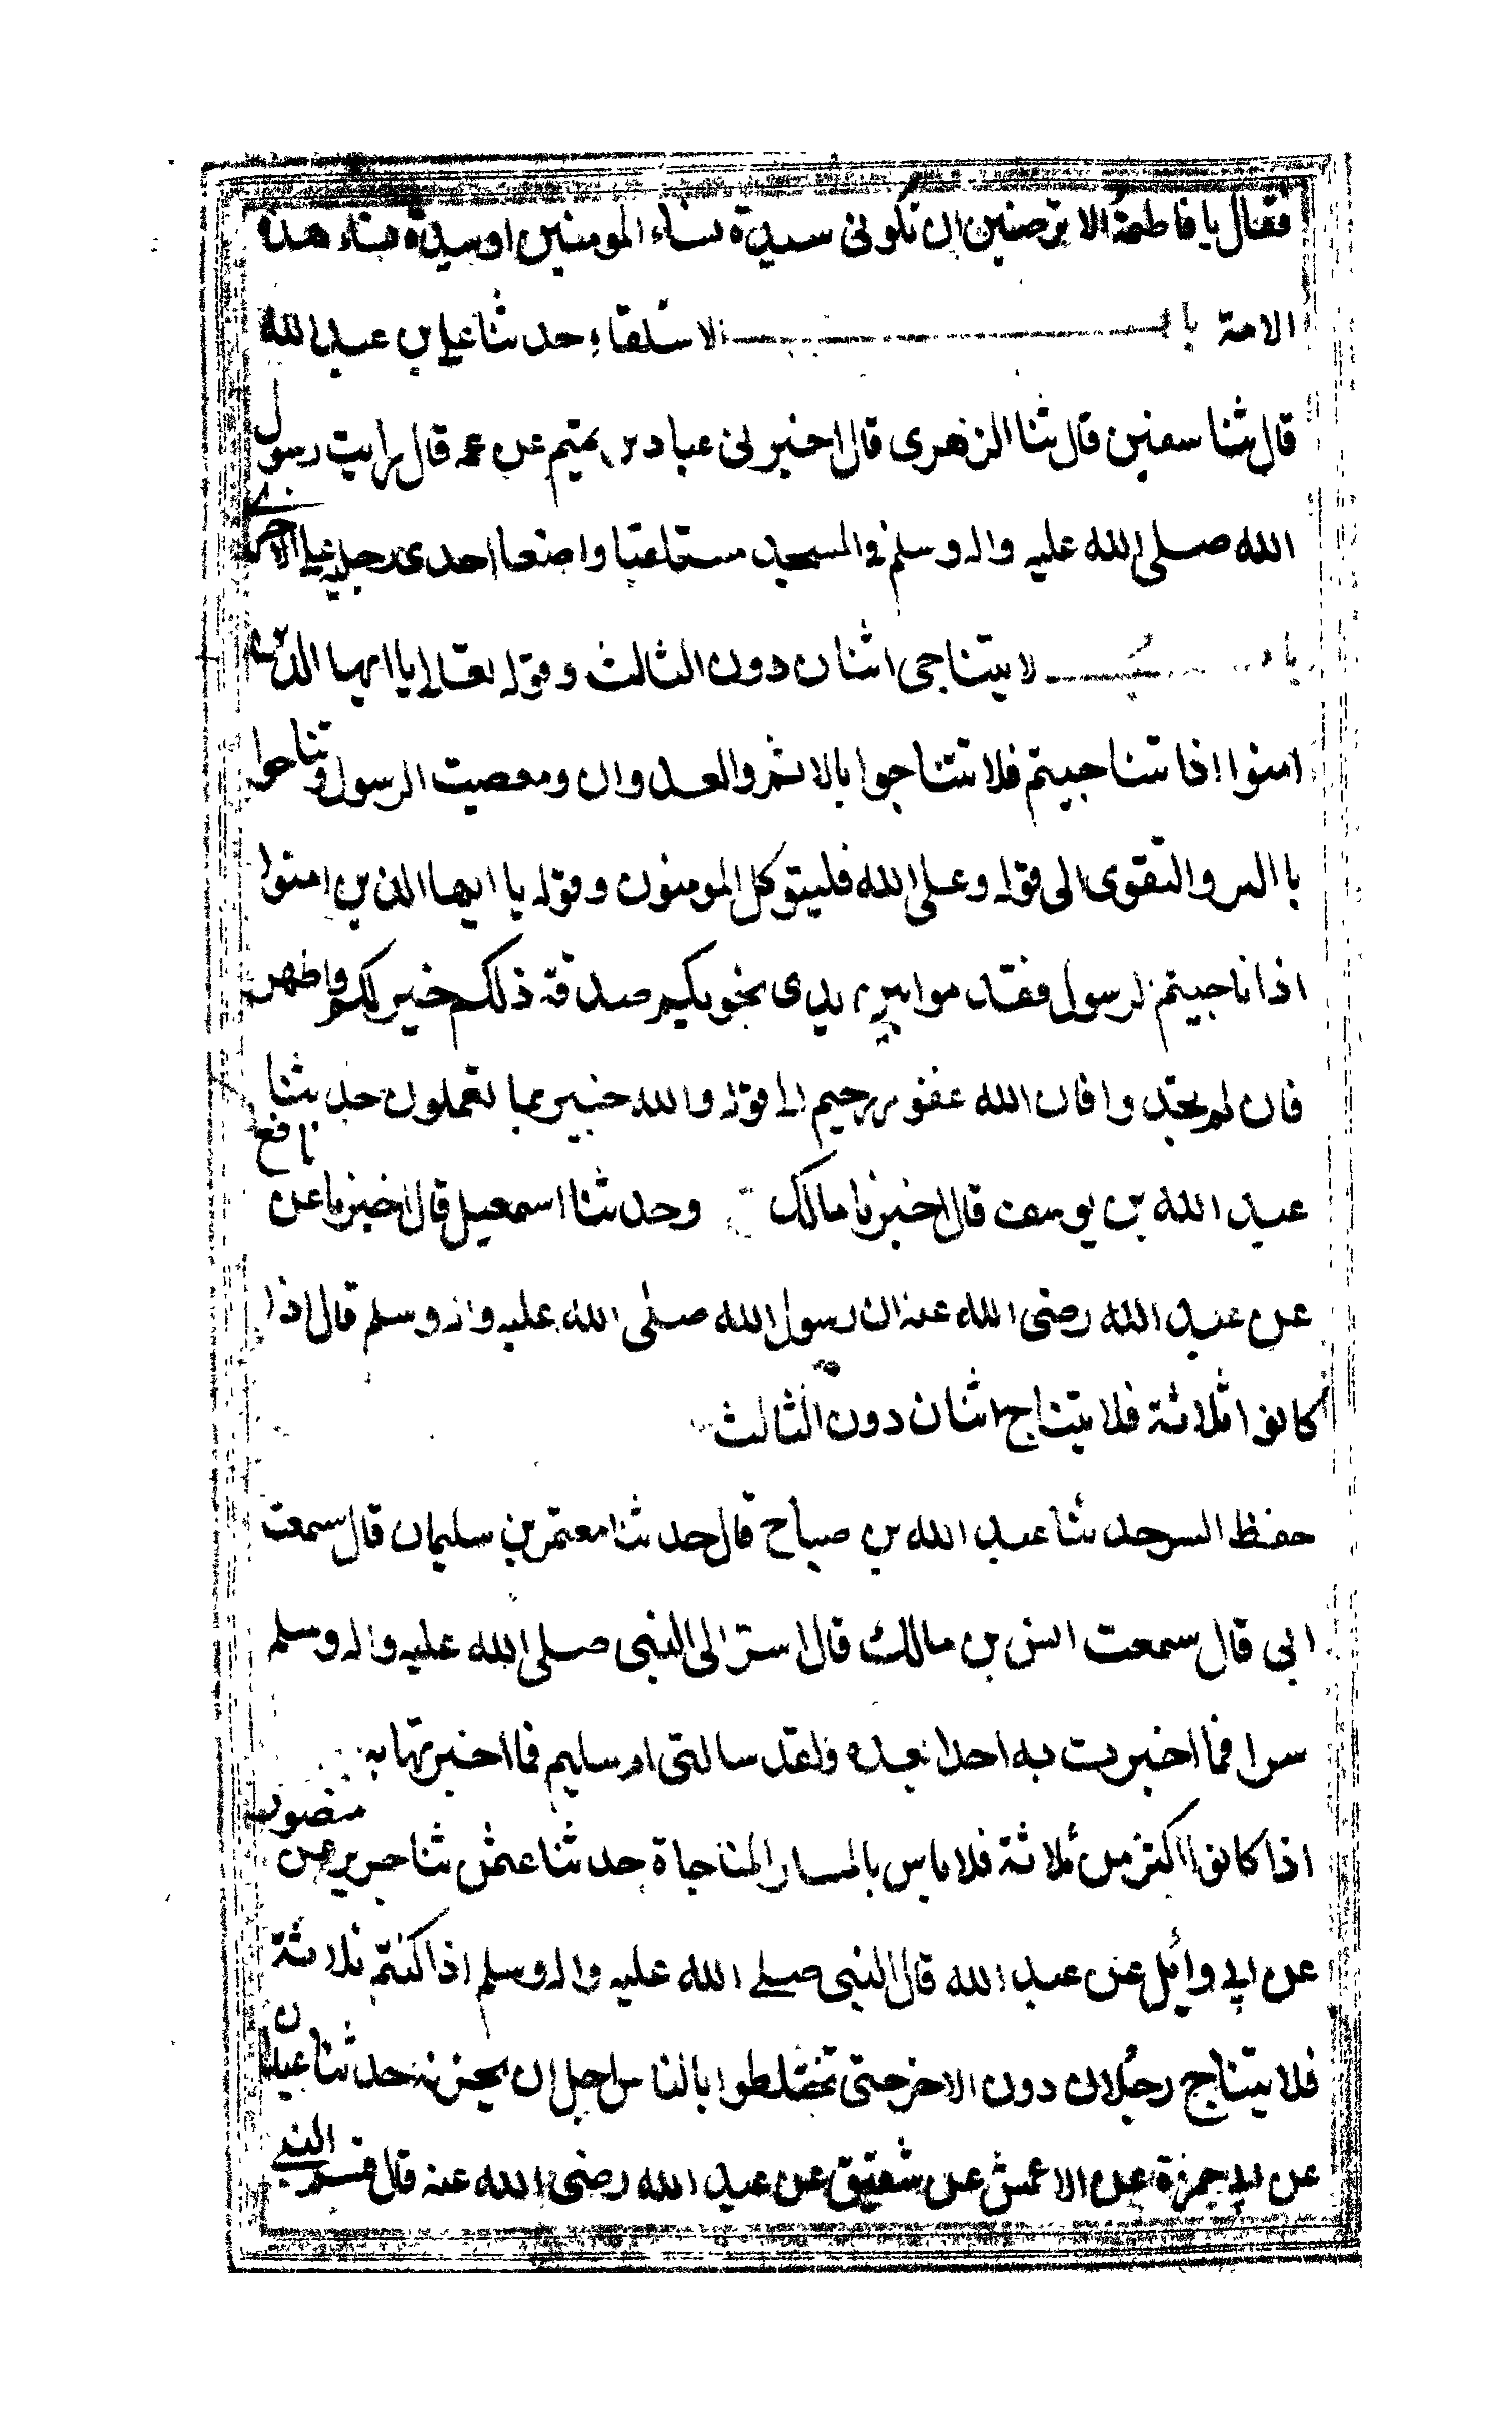 فقال يا فاطمة الا ترضين ان تكونى سيدة نساء المومنين او سيدة نساء هذه
الامة با الاستلقاء حدثنا على بن عبد الله
قال ثنا سفين قال ثنا الزهرى قال اخبرنى عباد بن تميم عن عمه قال رايت رسول
الله صلى الله عليه واله وسلم فى المسجد مستلقيا واضعا احدى رجليه على الاخرى
با ب لا يتناجى اثنان دون الثالث وقوله تعالى يا ايها الذين
امنوا اذا تناجيتم فلا تتناجوا بالاثم والعدوان ومعصيت الرسول وتناجوا
با البر والتقوى الى قوله وعلى الله فليتوكل المومنون وقوله يا ايها الذين امنوا
اذا ناجيتم الرسول فقدموا بين يدى نجويكم صدقة ذلك خير لكم واطهر
فان لم تجدوا فان الله غفور رحيم الى قوله والله خبير بما تعملون حدثنا
عبد الله بن يوسف قال اخبرنا مالك وحدثنا اسمعيل قال اخبرنا عن نافع
عن عبد الله رضى الله عنه ان رسول الله صلى الله عليه واله وسلم قال اذا
كانوا ثلاثة فلا يتناج اثنان دون الثالث
حفظ السر حدثنا عبد الله بن صباح قال حدثنا معتمر بن سليمان قال سمعت
ابى قال سمعت انس بن مالك قال استر الى النبى صلى الله عليه واله وسلم
سرا فما اخبرت به احدا بعده ولقد سالتى ام سليم فما اخبرتها به
اذا كانوا اكثر من ثلاثة فلا باس بالمسار المناجاة حدثنا عثمن ثنا جرير عن منصور
عن ابى وايل عن عبد الله قال النبى صلى الله عليه واله وسلم اذا كنتم ثلاثة
فلا يتناج رجلان دون الاخر حتى تختلطوا بالناس اجل ان يحزنه حدثنا عبدان
عن ابى حمزة عن الاعمش عن شقيق عن عبد الله رضى الله عنه قال قسم النبى